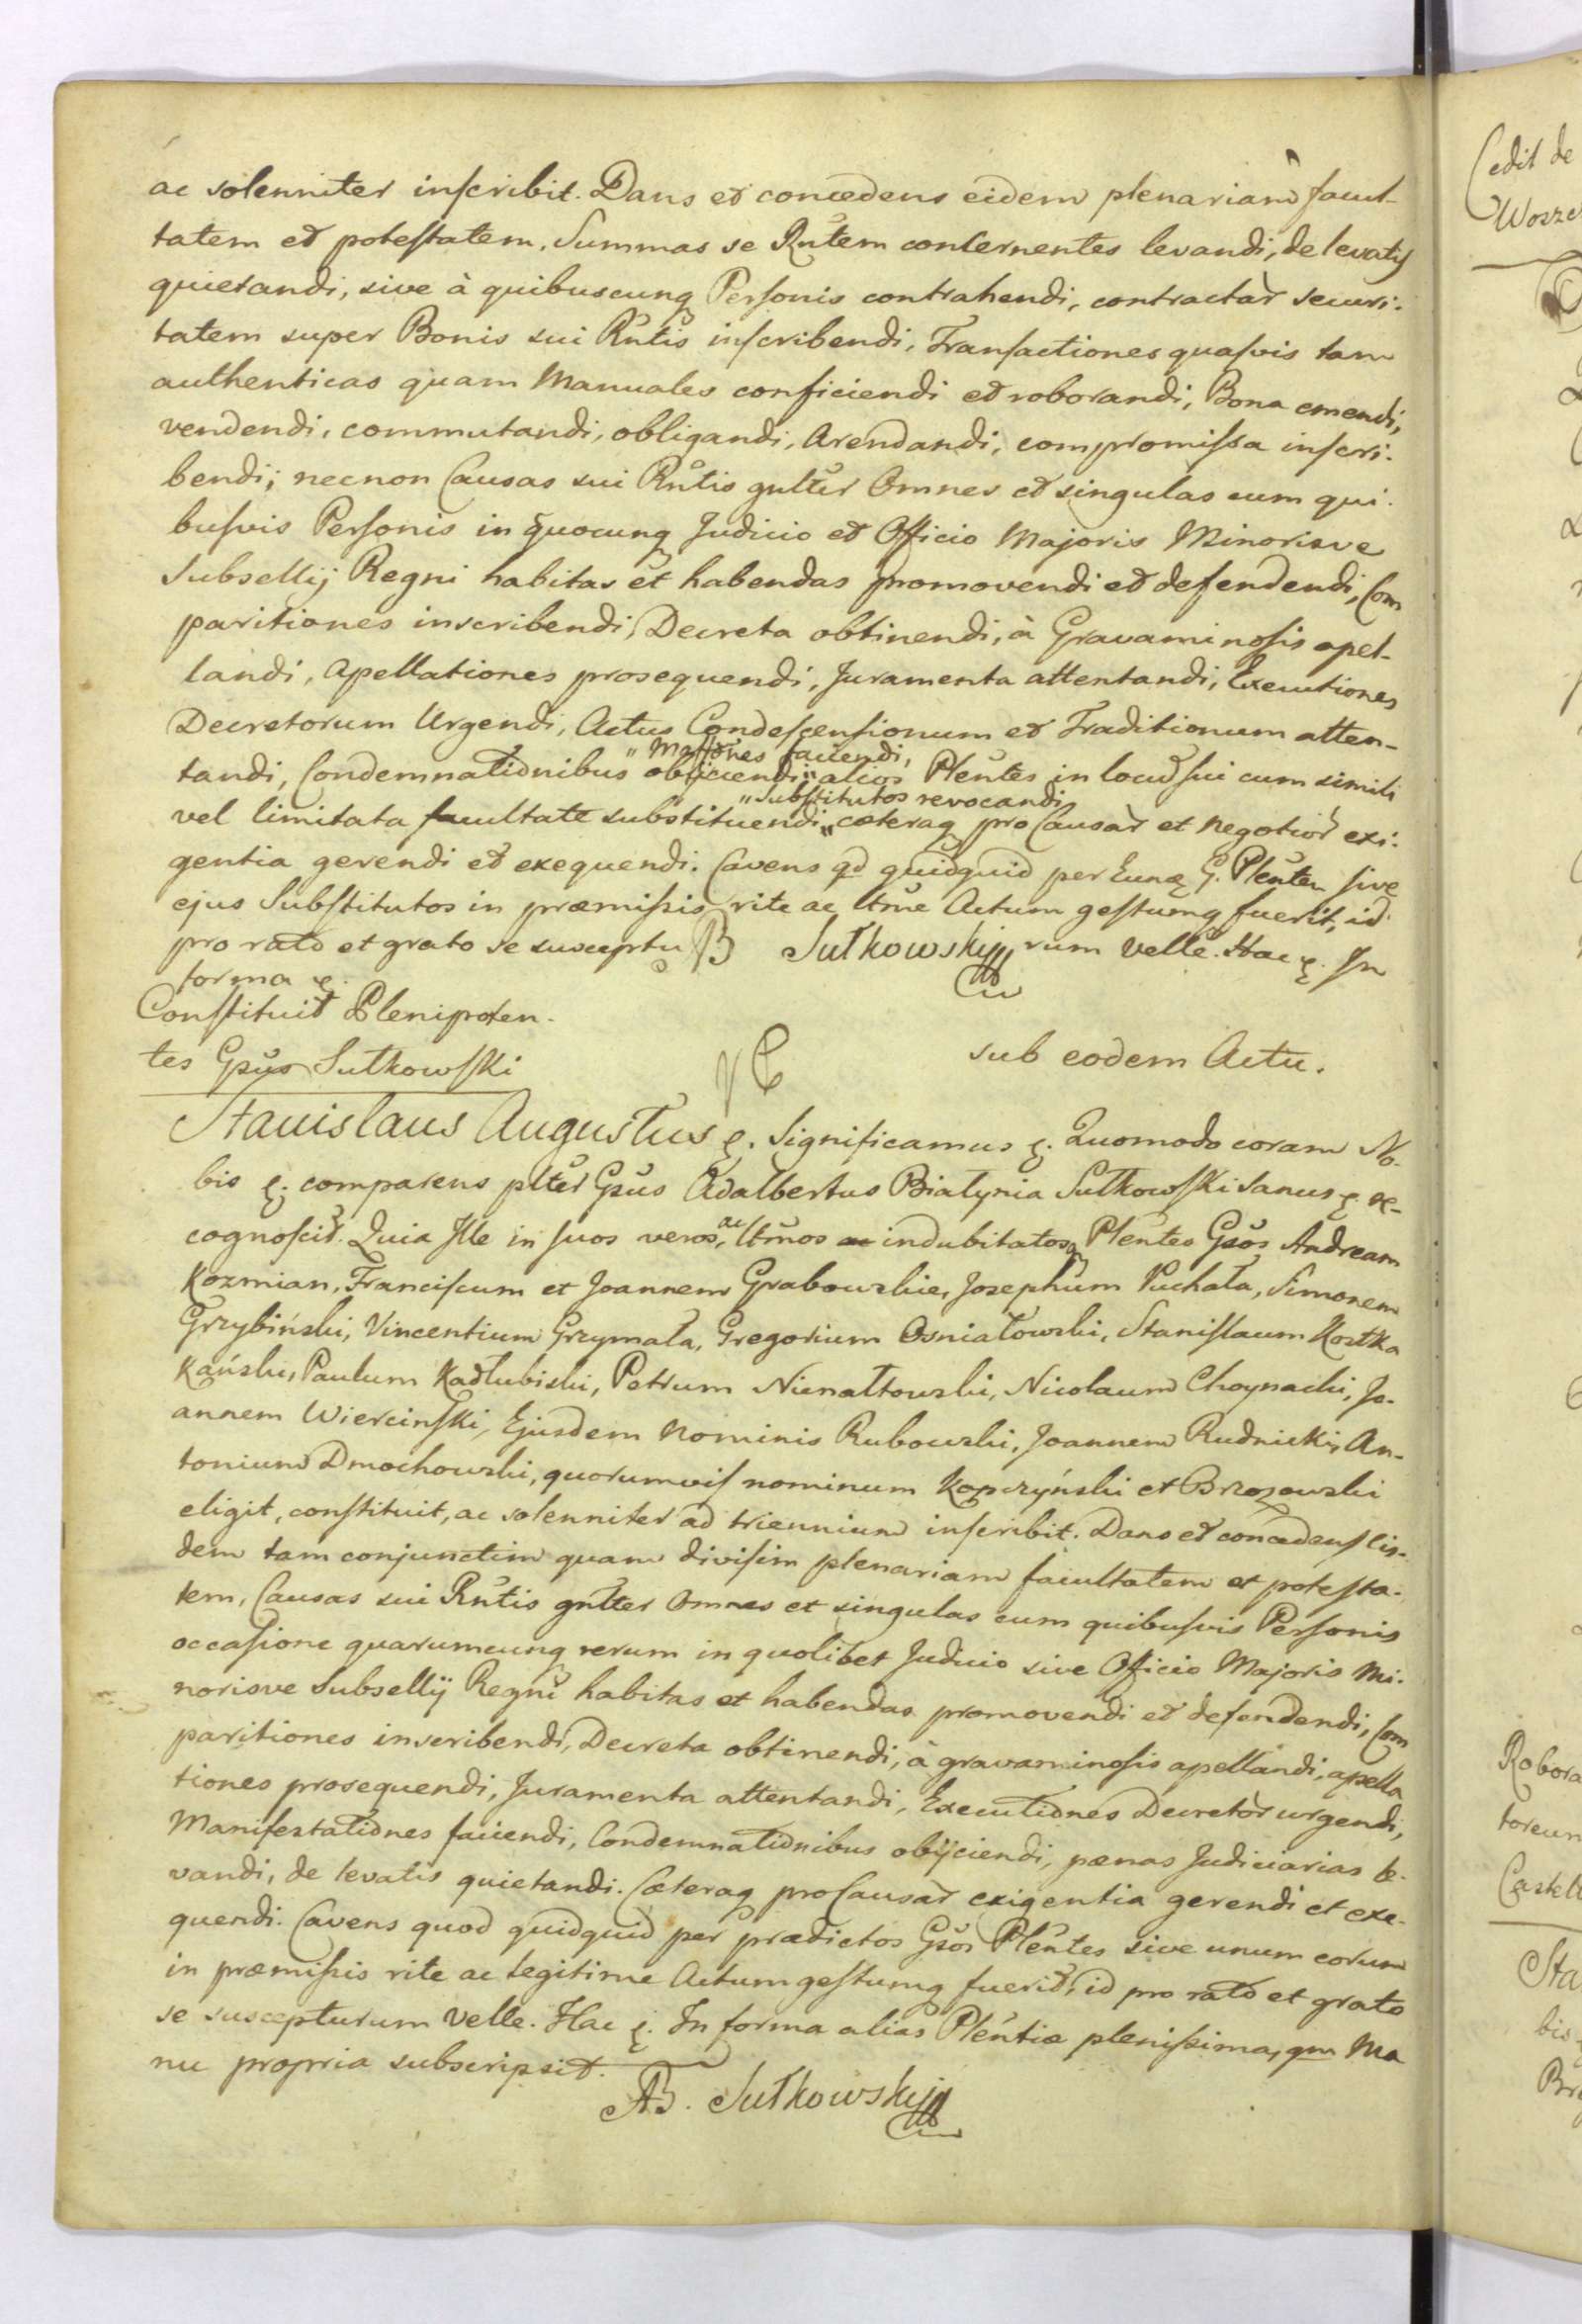 ac solenniter inscribit. Dans et concedens eidem plenariam facul-
tatem et potestatem, Summas se Rntem concernentes levandi, de levatis
quietandi, sive à quibuscunq Personis contrahendi, contractar securi-
tatem super Bonis sui Rntis inscribendi, Transactiones quasvis tam
authenticas quam Manuales conficiendi et roborandi, Bona emendi,
vendendi, commutandi, obligandi, Arendandi, compromissa inscri-
bendi; necnon Causas sui Rntis gnlter Omnes et singulas cum qui-
busvis Personis in quocunq Judicio et Officio Majoris Minorisve
Subsellij Regni habitas et habendas promovendi et defendendi, Com
paritiones inscribendi, Decreta obtinendi, à Gravaminosis apel-
landi, Apellationes prosequendi, Juramenta attentandi, Executiones
Decretorum Urgendi, Actus Condescensionum et Traditionum atten-
"Maffones faciendi,
tandi, Condemnationibus obijciendi" alios Plentes in locū sui cum simili
"Substitutos revocandi
vel limitata facultate substituendi" cæteraq pro Causar et Negotior exi-
gentia gerendi et exequendi. Cavens qd quidquid per Eunq G. Plenten sive
ejus Substitutos in præmissis rite ac ltme Actum gestumq fuerit, id
pro rato et grato se susceptu B Sułkowskij rum velle. Hac &. In
forma &.
Constituit Plenipoten-
tes Gsus Sułkowski
sub eodem Actu.
Stanislaus Augustus &. Significamus &. Quomodo coram No-
bis &. comparens plter Gsus Adalbertus Białynia Sułkowski sanus &. re-
cognoscit. Quia Ille in suos veros, ac ltmos indubitatosq Plentes Gsos Andream
Kozmian, Franciscum et Joannem Grabowskie, Josephum Puchała, Simonem
Grzybiński, Vincentium Grzymała, Gregorium Osniałowski, Stanislaum Kostka
Kański, Paulum Kadłubiski, Petrum Nienałtowski, Nicolaum Choynacki, Jo-
annem Wiercinski, Ejusdem Nominis Rubowski, Joannem Rudnicki, An-
tonium Dmochowski, quorumvis nominum Kopczyński et Brzozowski
eligit, constituit, ac solenniter ad triennium inscribit. Dans et concedens Eis-
dem tam conjunctim quam divisim plenariam facultatem et potesta-
tem, Causas sui Rntis gnlter Omnes et singulas cum quibusvis Personis
occasione quarumcunq rerum in quolibet Judicio sive Officio Majoris Mi-
norisve Subsellij Regni habitas et habendas promovendi et defendendi, Com
paritiones inscribendi, Decreta obtinendi, à gravaminosis apellandi, apella
tiones prosequendi, Juramenta attentandi, Executiones Decretor urgendi,
Manifestationes faciendi, Condemnationibus obijciendi, pænas Judiciarias le-
vandi, de levatis quietandi. Cæteraq pro Causar exigentia gerendi et exe-
quendi. Cavens quod quidquid per prædictos Gsos Plentes sive unum eorum
in præmissis rite ac legitime Actum gestumq fuerit, id pro rato et grato
se suscepturum velle. Hac &. In forma alias Plentiæ plenissima, qm Ma
nu propria subscripsit.
AB. Sułkowskij
Cedit de
Robora
Castell
Sta
bis